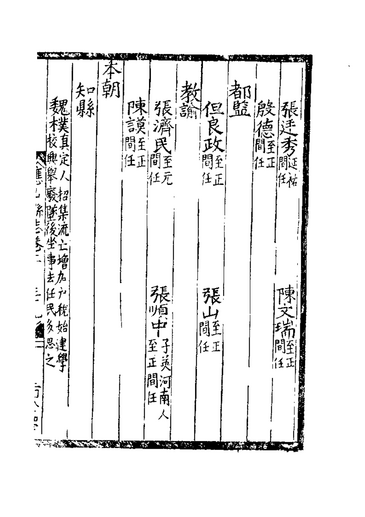 張廷秀延祐間任
陳文瑞至正間任
殷德至正間任
都監
但良政至正間任
張山至正間任
教諭
張濟民至元間任
張順中子英河南人至正間任
陳謨至正間任
本朝
知縣
魏樸真定人招集流亡增加戶稅始建學
校興舉廢墜後坐事去任民多思之
應山縣志卷上